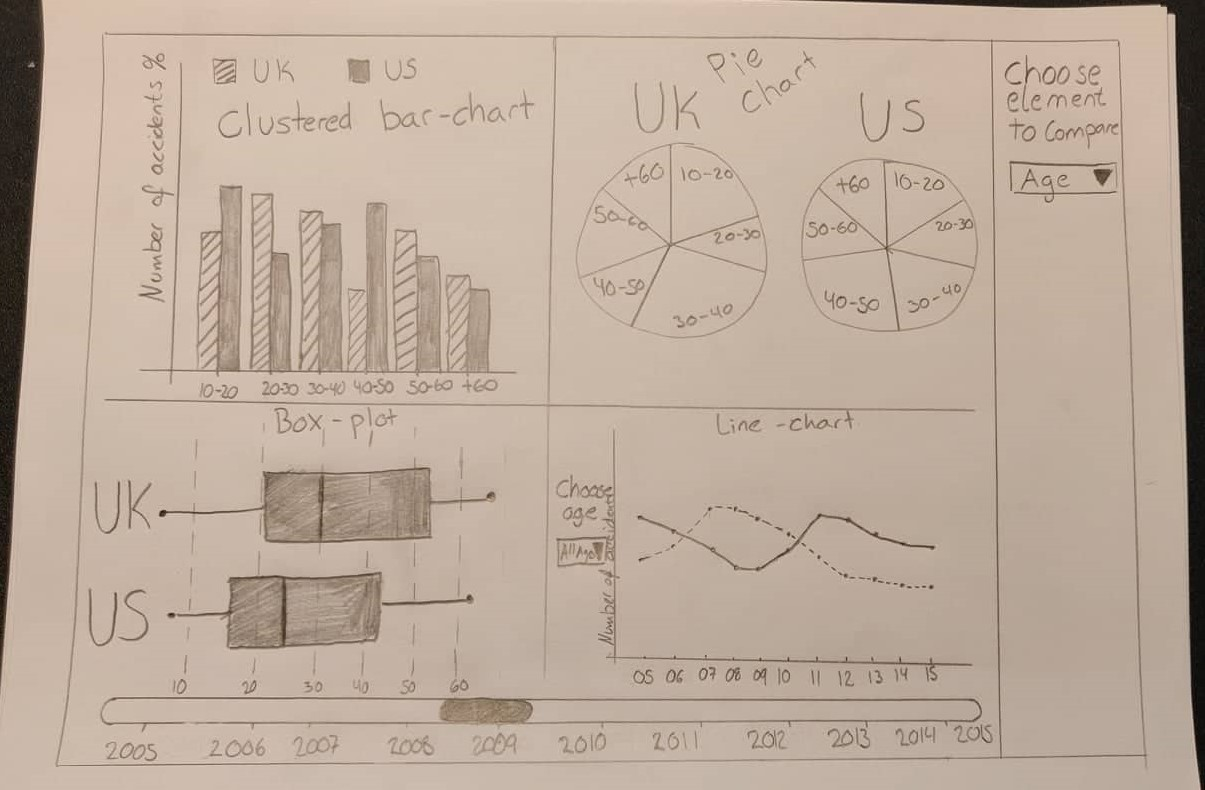 UK US
Clustered bar-chart
Number of accidents %
10-20 20-30 30-40 40-50 50-60 +60
Pie
chart
UK
+60 10-20
50-60 20-30
40-50
30-40
US
+60 10-20
50-60 20-30
40-50 30-40
Choose
element
to Compare
Age
Box-plot
UK
US
10 20 30 40 50 60
Line-chart
Choose
age
All Age
Number of accidents
05 06 07 08 09 10 11 12 13 14 15
2005 2006 2007 2008 2009 2010 2011 2012 2013 2014 2015